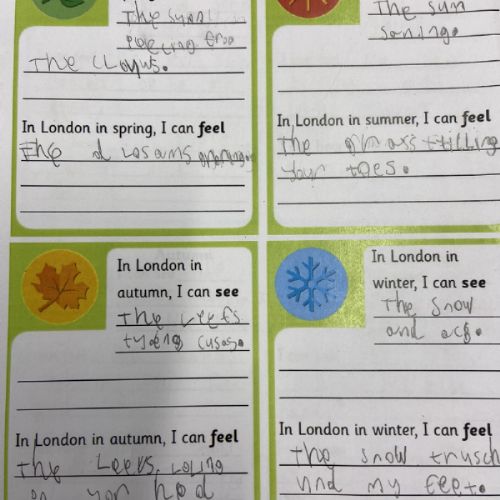 the sun
peecing froo
the clayws.
In London in spring, I can feel
the opening.
the sun
soning.
In London in summer, I can feel
the grass tilling
your toes.
In London in
autumn, I can see
the leefs
In London in autumn, I can feel
the Leevs
on yor hed
In London in
winter, I can see
the snow
and
In London in winter, I can feel
the snow crusch
und my feet.